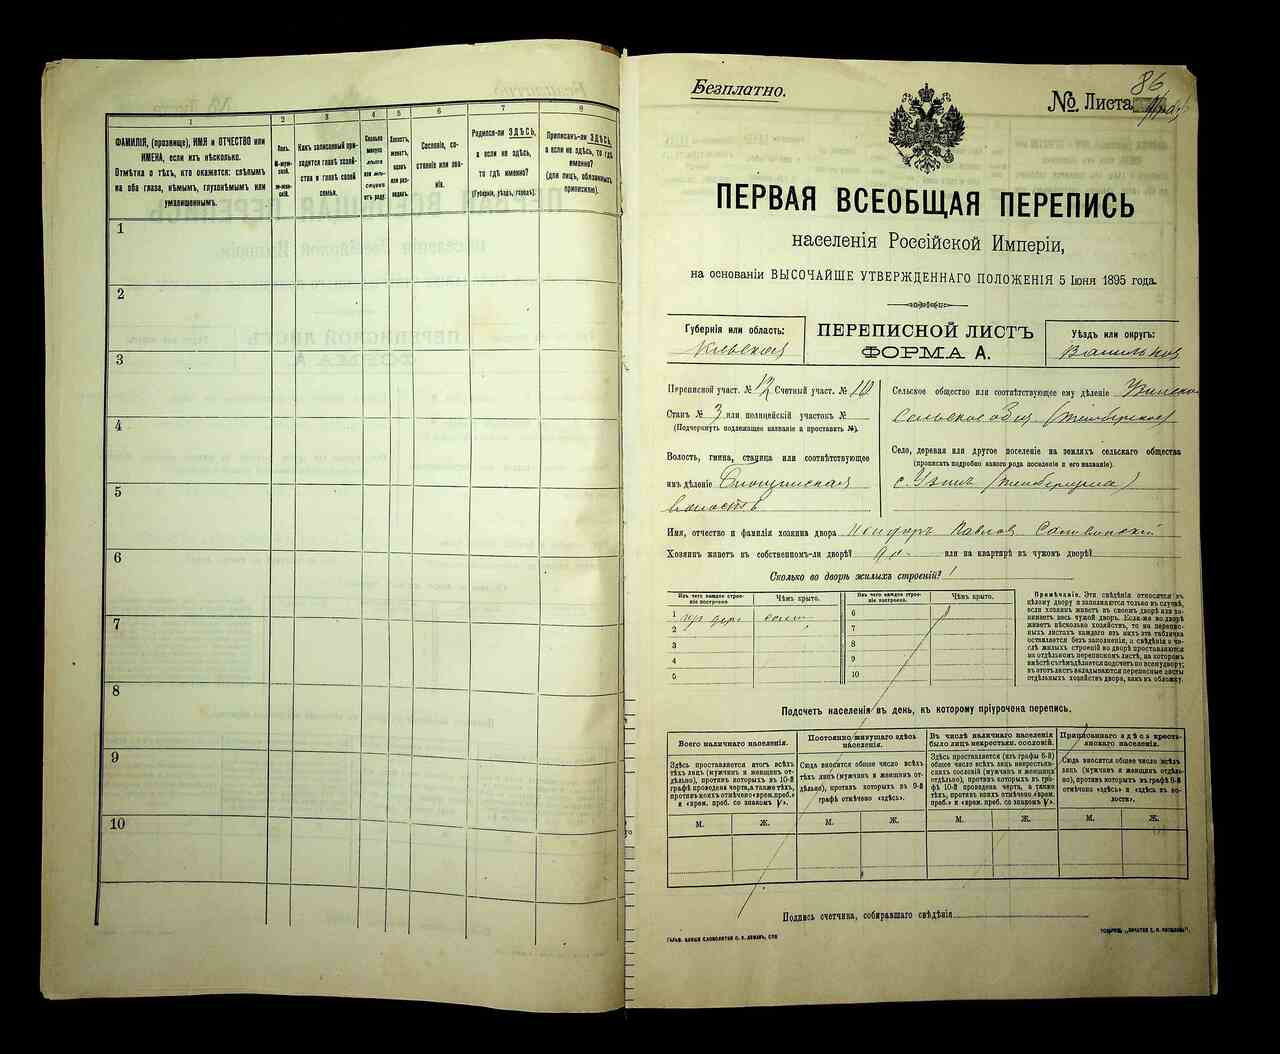 1
2
3
4
5
6
7
8
ФАМИЛІЯ, (прозвище), ИМЯ и ОТЧЕСТВО или
ИМЕНА, если ихъ нѣсколько.
Отмѣтка о тѣхъ, кто окажется: слѣпымъ
на оба глаза, нѣмымъ, глухонѣмымъ или
умалишеннымъ.
Полъ.
М-муж-
ской.
Ж-жен-
скій.
Какъ записанный при-
ходится главѣ хозяй-
ства и главѣ своей
семьи.
Сколько
минуло
лѣтъ
или мѣ-
сяцевъ
отъ роду.
Холостъ,
женатъ,
вдовъ
или раз-
веденъ.
Сословіе, со-
стояніе или зва-
ніе.
Родился-ли ЗДѢСЬ,
а если не здѣсь,
то гдѣ именно?
(Губернія, уѣздъ, городъ).
Приписанъ-ли ЗДѢСЬ,
а если не здѣсь, то гдѣ
именно?
(для лицъ, обязанныхъ
припискою).
1
2
3
4
5
6
7
8
9
10
Безплатно.
86
№. Листа
ПЕРВАЯ ВСЕОБЩАЯ ПЕРЕПИСЬ
населенія Россійской Имперіи,
на основаніи ВЫСОЧАЙШЕ УТВЕРЖДЕННАГО ПОЛОЖЕНІЯ 5 Іюня 1895 года.
Губернія или область:
Кіевская
ПЕРЕПИСНОЙ ЛИСТЪ
ФОРМА А.
Уѣздъ или округъ:
Васильков
Переписной участ. № 12 Счетный участ. № 10
Станъ № 3 или полицейскій участокъ №
(Подчеркнуть подлежащее названіе и проставить №).
Волость, гмина, станица или соотвѣтствующее
имъ дѣленіе
волость
Сельское общество или соотвѣтствующее ему дѣленіе Узинско
Сельское
Село, деревня или другое поселеніе на земляхъ сельскаго общества
(прописать подробно какого рода поселеніе и его названіе).
с. Узинъ
Имя, отчество и фамилія хозяина двора Павлов
Хозяинъ живетъ въ собственномъ-ли дворѣ? да или на квартирѣ въ чужомъ дворѣ?
Сколько во дворѣ жилыхъ строеній? 1
Изъ чего каждое строе-
ніе построено
Чѣмъ крыто.
1 дер. солом
2
3
4
5
Изъ чего каждое строе-
ніе построено.
Чѣмъ крыто.
6
7
8
9
10
Примѣчаніе. Эти свѣдѣнія относятся къ
цѣлому двору и заполняются только въ случаѣ,
если хозяинъ живетъ въ своемъ дворѣ или за-
нимаетъ весь чужой дворъ. Если-же во дворѣ
живетъ нѣсколько хозяйствъ, то на перепис-
ныхъ листахъ каждаго изъ нихъ эта табличка
оставляется безъ заполненія, а свѣдѣнія о чи-
слѣ жилыхъ строеній во дворѣ проставляются
на отдѣльномъ переписномъ листѣ, на которомъ
вмѣстѣ съ тѣмъ дѣлается подсчетъ по всему двору;
въ этотъ листъ вкладываются переписные листы
отдѣльныхъ хозяйствъ двора, какъ въ обложку.
Подсчетъ населенія въ день, къ которому пріурочена перепись.
Всего наличнаго населенія.
Здѣсь проставляется итогъ всѣхъ
тѣхъ лицъ (мужчинъ и женщинъ от-
дѣльно), противъ которыхъ въ 10-й
графѣ проведена черта, а также тѣхъ,
противъ коихъ отмѣчено «врем. преб.»
и «врем. преб. со знакомъ V».
Постоянно живущаго здѣсь
населенія.
Сюда вносится общее число всѣхъ
тѣхъ лицъ (мужчинъ и женщинъ от-
дѣльно), противъ которыхъ въ 9-й
графѣ отмѣчено «здѣсь».
Въ числѣ наличнаго населенія
было лицъ некрестьян. сословій.
Здѣсь проставляется (изъ графы 6-й)
общее число всѣхъ лицъ некрестьян-
скихъ сословій (мужчинъ и женщинъ
отдѣльно), противъ которыхъ въ гра-
фѣ 10-й проведена черта, а также
тѣхъ, противъ коихъ отмѣчено «врем.
преб.» и «врем. преб. со знакомъ V».
Приписаннаго здѣсь кресть-
янскаго населенія.
Сюда вносится общее число всѣхъ
лицъ (мужчинъ и женщинъ отдѣль-
но), противъ которыхъ въ графѣ 8-й
отмѣчено «здѣсь» и «здѣсь въ во-
лости».
М. Ж. М. Ж. М. Ж. М. Ж.
Подпись счетчика, собиравшаго свѣдѣнія